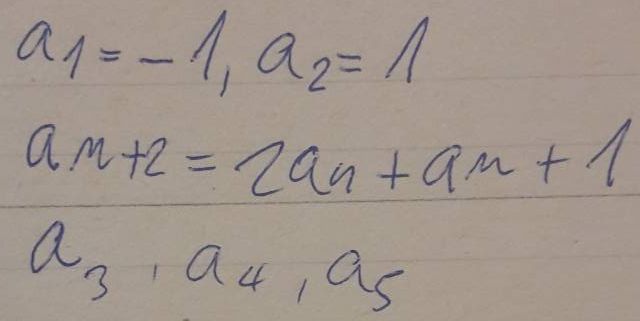 a₁ = -1, a₂ = 1
aₙ₊₂ = 2aₙ + aₙ + 1
a₃, a₄, a₅